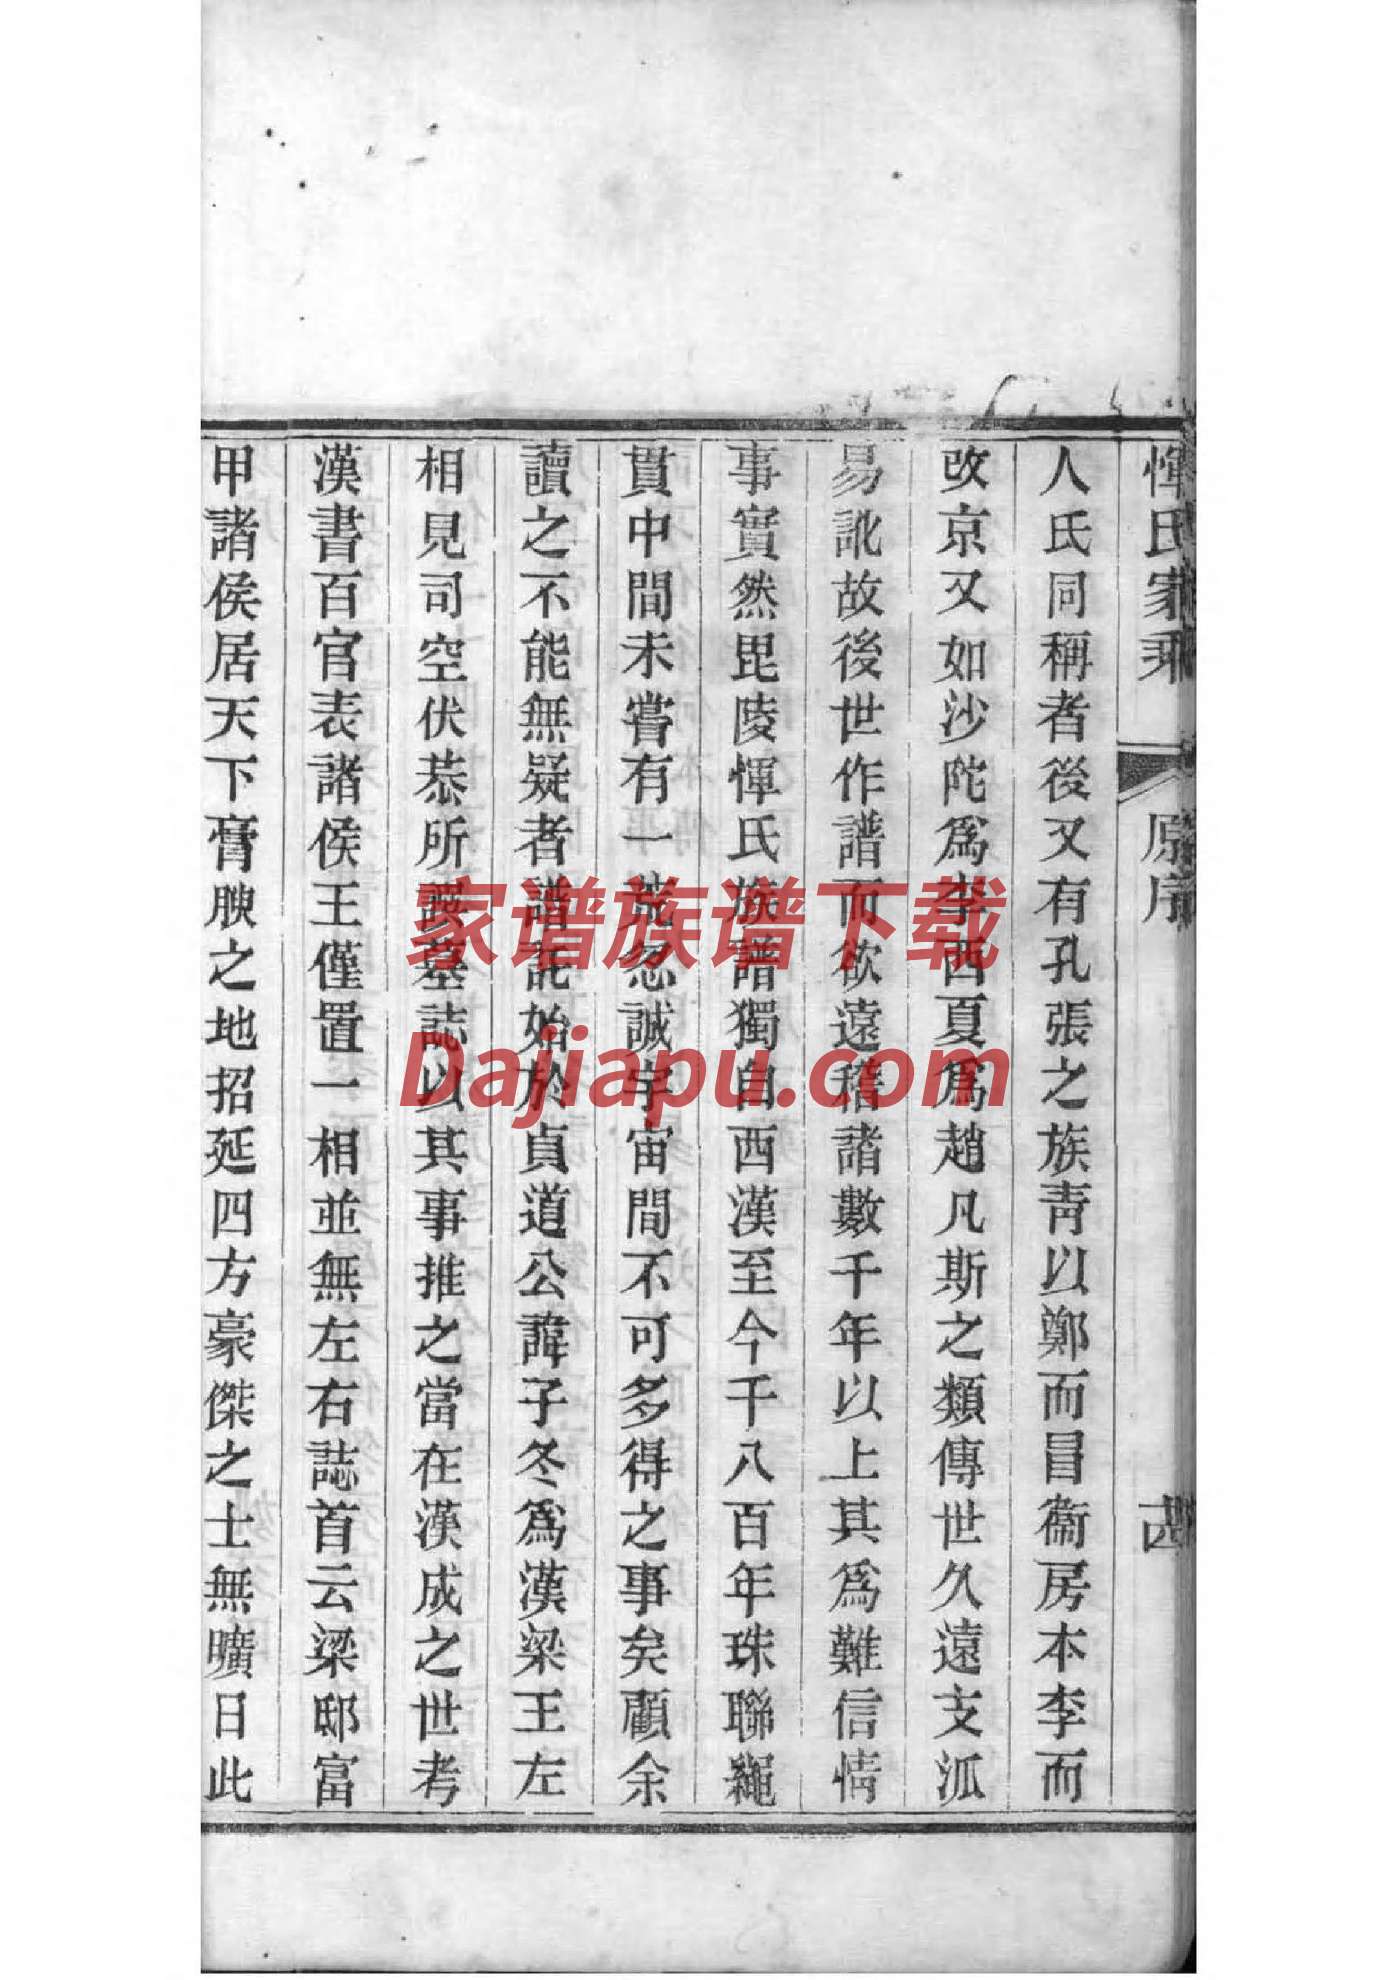 惲氏家乘
原序
十四
人氏同稱者後又有孔張之族靑以鄭而冒衞房本李而
改京又如沙陀爲李西夏爲趙凡斯之類傳世久遠支派
易訛故後世作譜而欲遠稽諸數千年以上其爲難信情
事實然毘陵惲氏族譜獨自西漢至今千八百年珠聯繩
貫中間未嘗有一荒忽誠宇宙間不可多得之事矣顧余
讀之不能無疑者譜託始於貞道公諱子冬爲漢梁王左
相見司空伏恭所譔墓誌以其事推之當在漢成之世考
漢書百官表諸侯王僅置一相並無左右誌首云梁邸富
甲諸侯居天下膏腴之地招延四方豪傑之士無曠日此
家谱族谱下载
Dajiapu.com